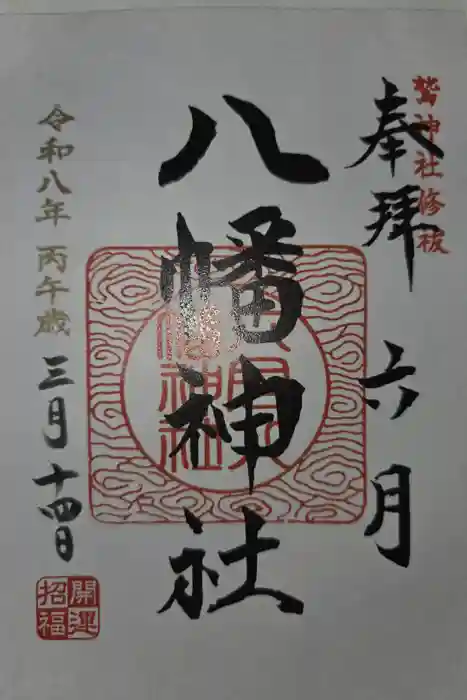 鷲神社修祓
奉拝
六月
八幡神社
令和八年 丙午歳
三月十四日
開運
招福